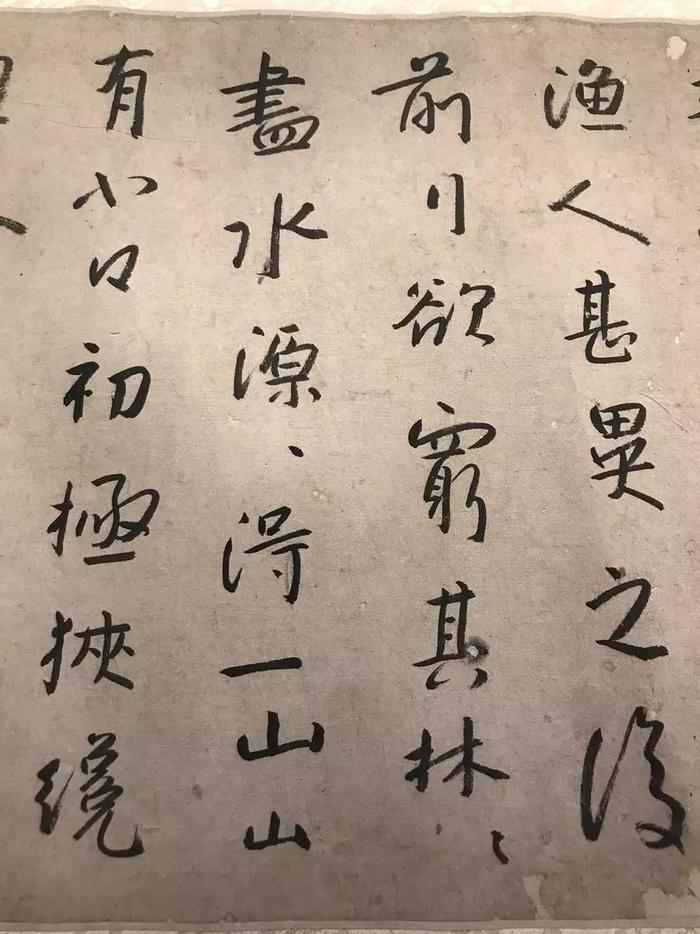 渔人甚異之復
前行欲窮其林〻
盡水源〻得一山山
有小口初極狹纔